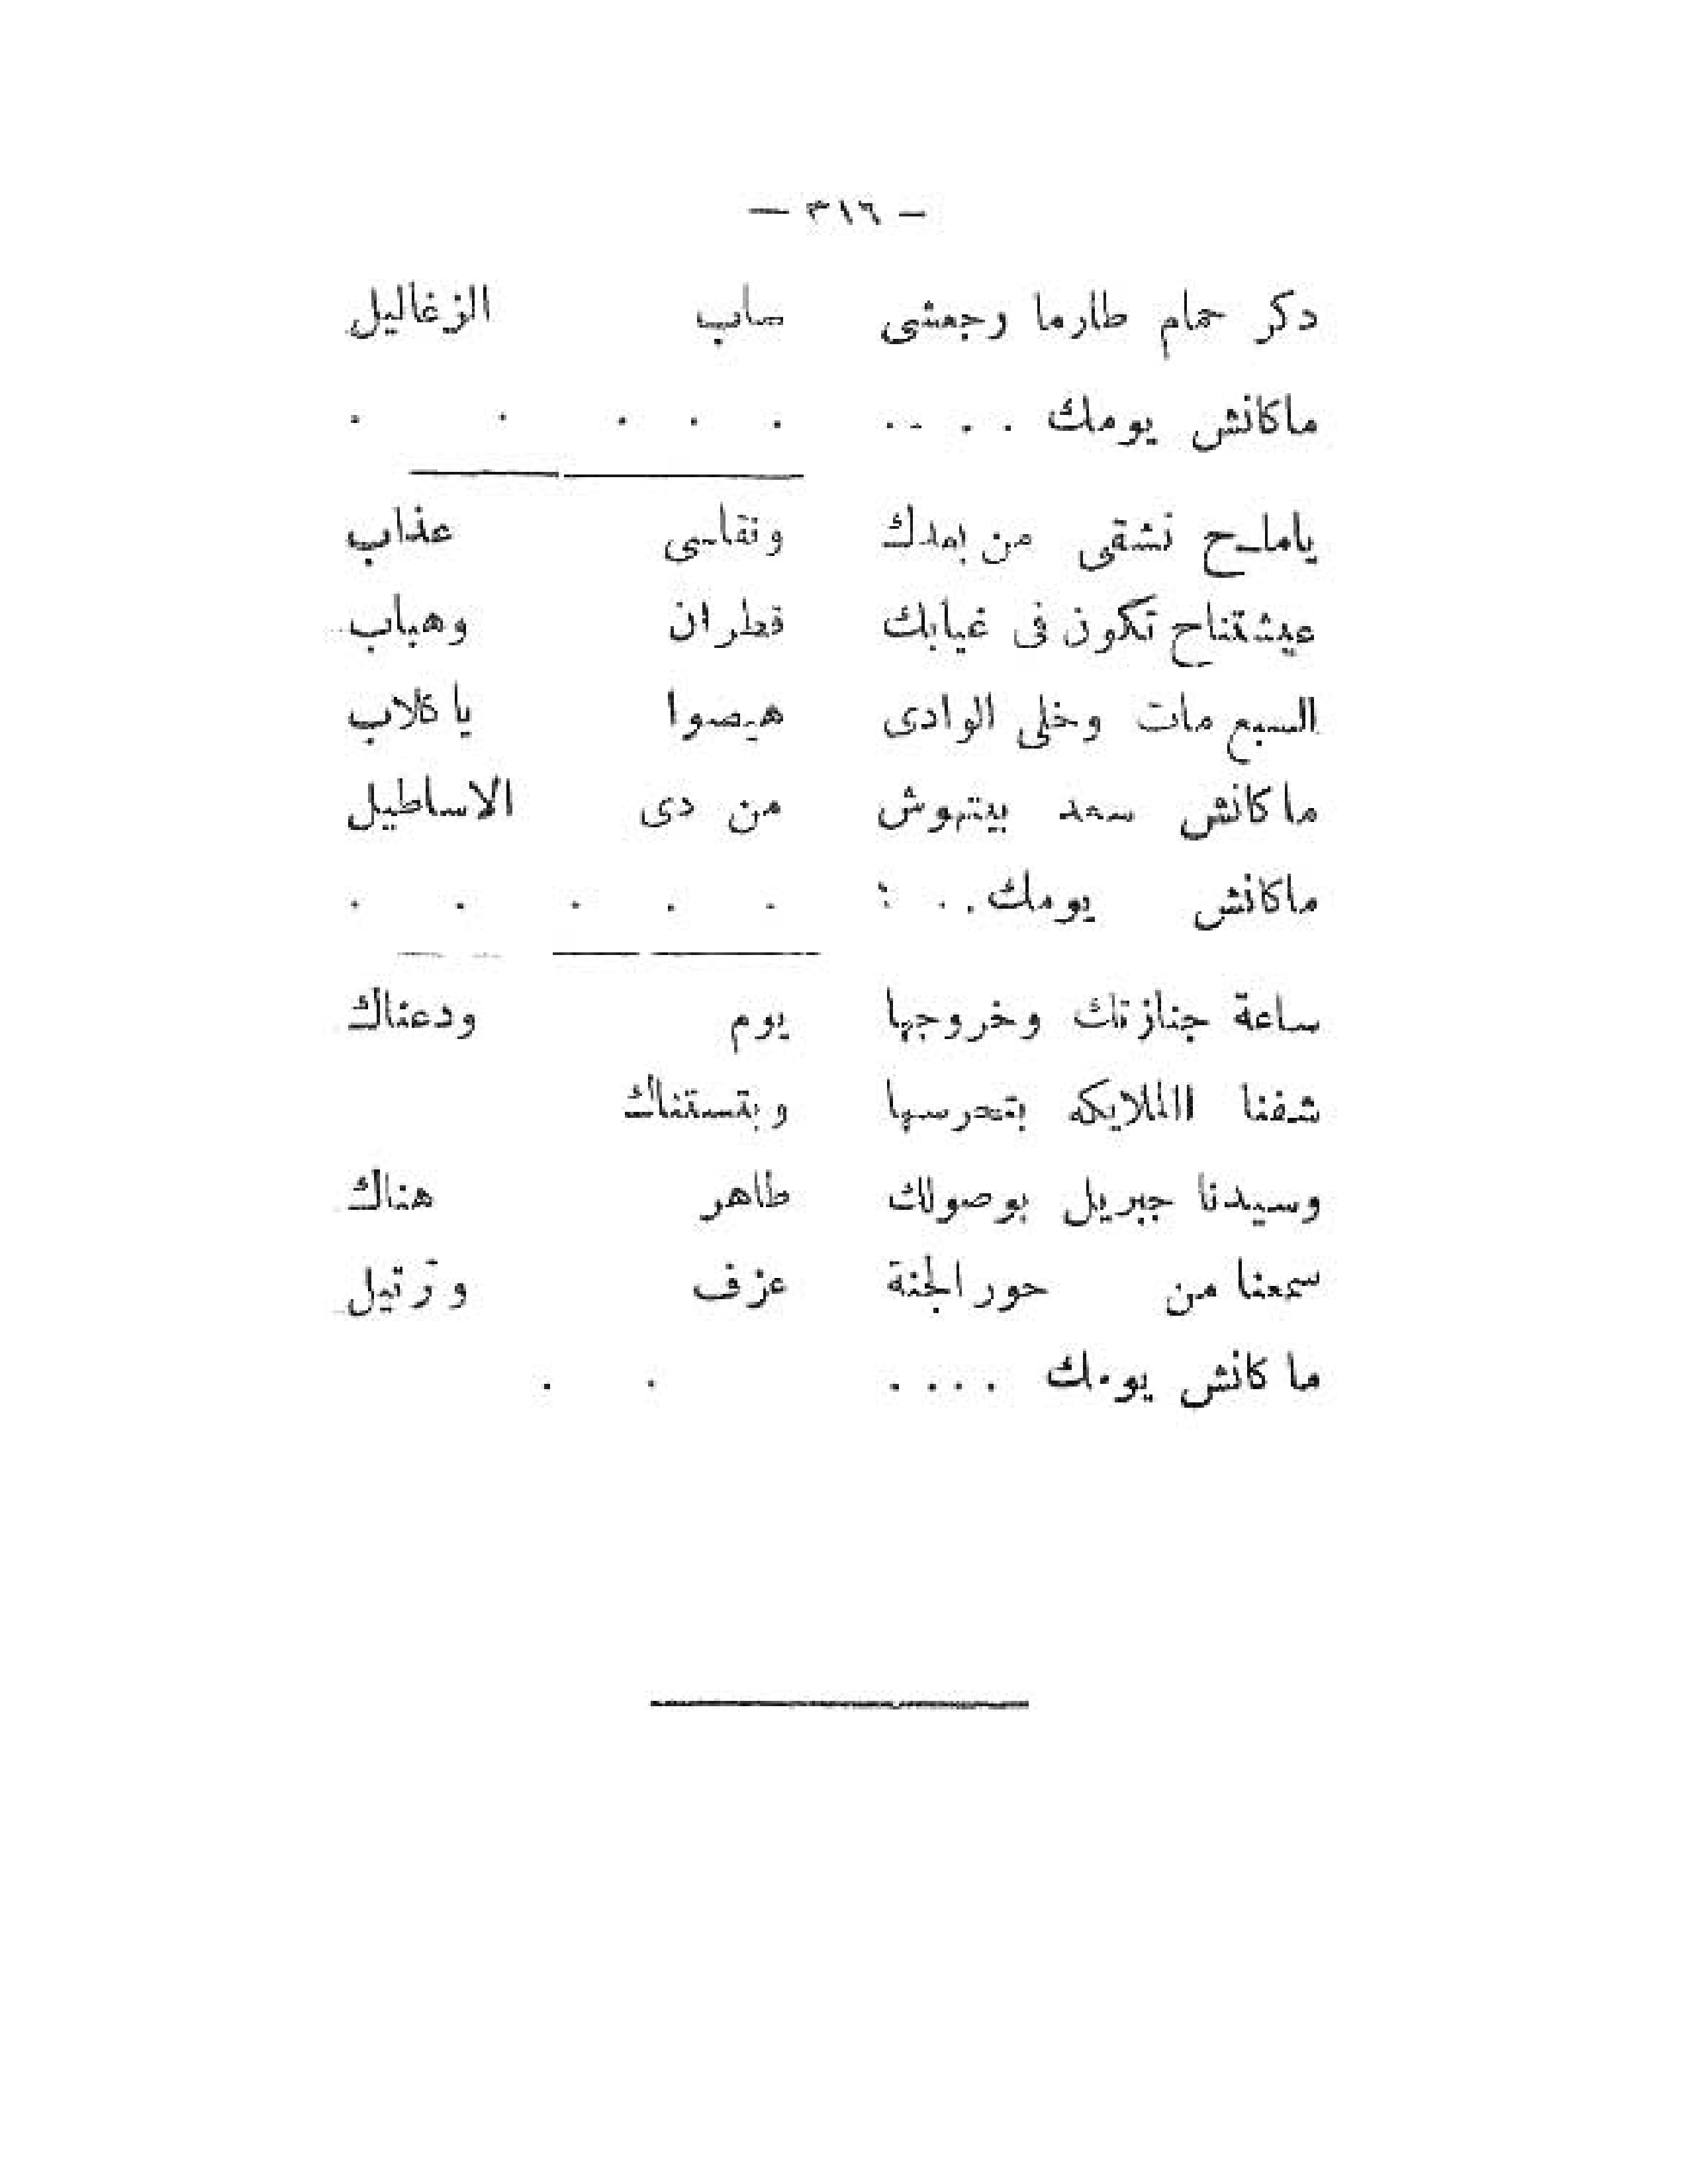 — ٣١٦ —
دكر حمام طارما رجعشى ساب الزغاليل
ماكانش يومك . . . . . . . . .
ياماح نشقى من بعدك ونقاسى عذاب
عيشتناح تكون فى غيابك قطران وهباب
السبع مات وخلى الوادى هيصوا يا كلاب
ما كانش سعد بيتهوش من دى الاساطيل
ماكانش يومك . . : . . . . .
ساعة جنازتك وخروجها يوم ودعناك
شفنا االملايكه بتحرسها وبتستناك
وسيدنا جبريل بوصولك طاهر هناك
سمعنا من حور الجنة عزف وترتيل
ما كانش يومك . . . . . .